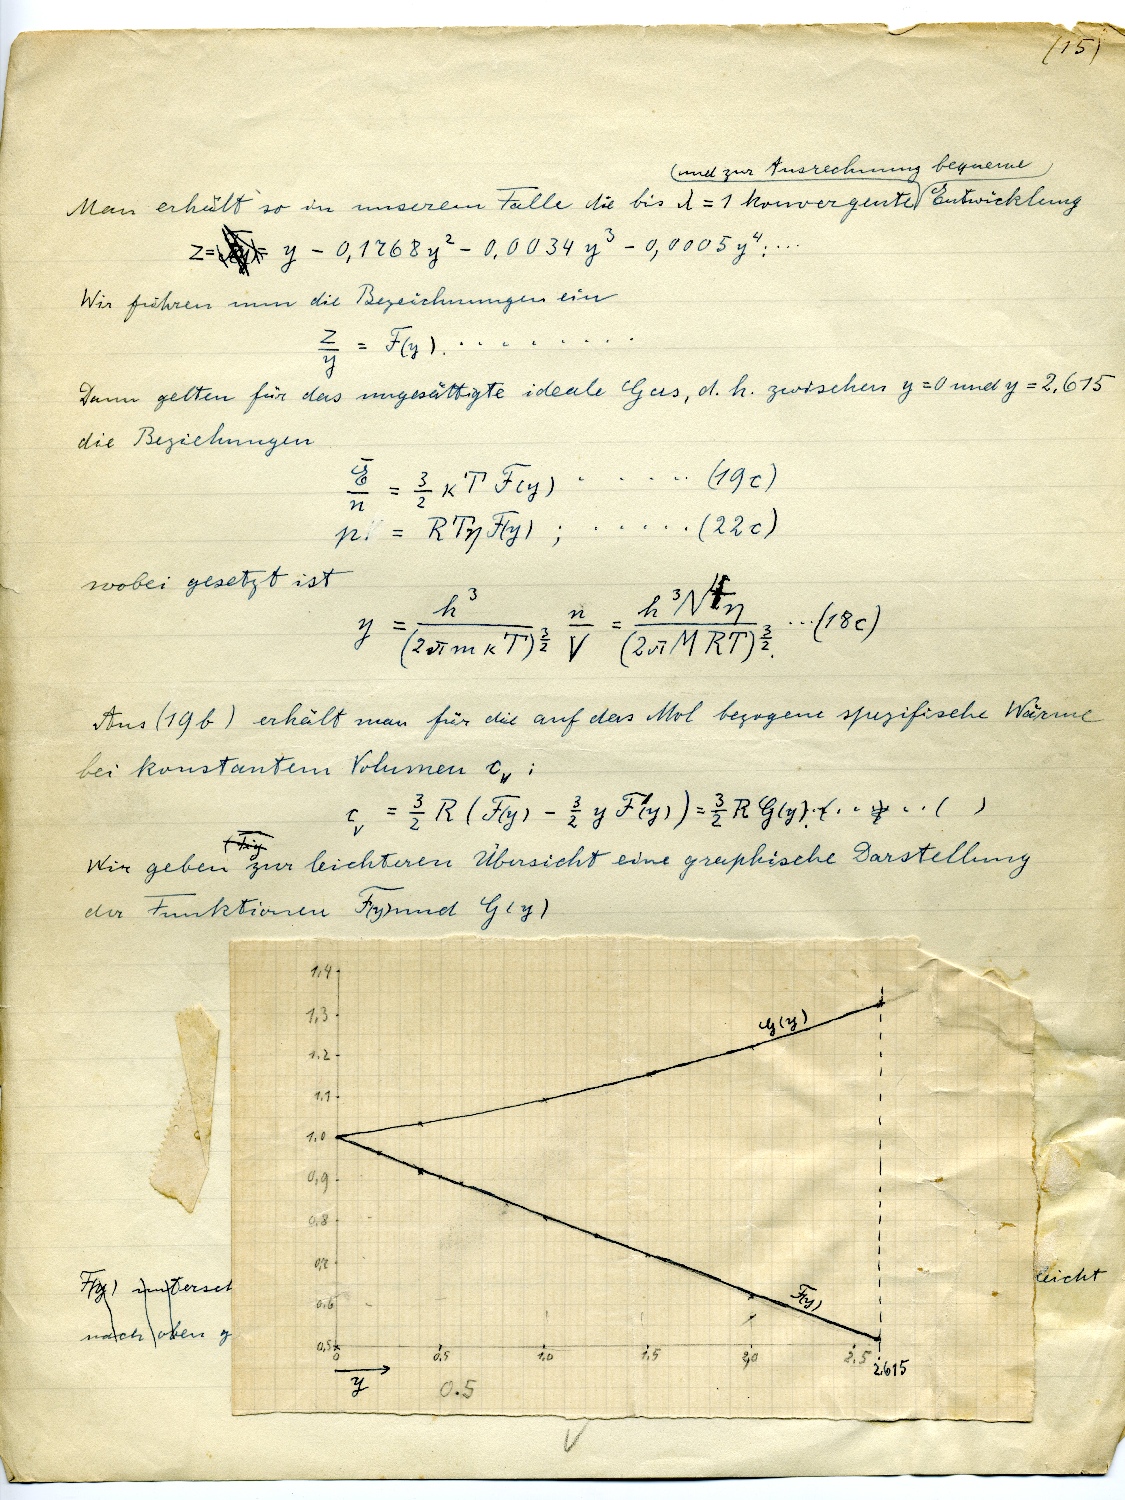 (15)
(und zur Ausrechnung bequeme)
Man erhält so in unserem Falle die bis λ = 1 konvergente Entwicklung
z = y - 0,1768 y² - 0,0034 y³ - 0,0005 y⁴; ...
Wir führen nun die Bezeichnungen ein
z/y = F(y) . . . . . . . . .
Dann gelten für das ungesättigte ideale Gas, d. h. zwischen y = 0 und y = 2,615
die Beziehungen
Ē/n = 3/2 κT F(y) . . . . . . (19c)
pV = RTη F(y) ; . . . . . . (22c)
wobei gesetzt ist
y = h³/(2πmκT)^(3/2) n/V = h³N⁴η/(2πMRT)^(3/2) ...(18c)
Aus (19b) erhält man für die auf das Mol bezogene spezifische Wärme
bei konstantem Volumen c_v:
c_v = 3/2 R (F(y) - 3/2 y F'(y)) = 3/2 R G(y) . . . . . ( )
Wir geben zur leichteren Übersicht eine graphische Darstellung
der Funktionen F(y) und G(y)
1,4
1,3
1,2
1,1
1,0
0,9
0,8
0,7
0,6
0,5
G(y)
F(y)
0 0,5 1,0 1,5 2,0 2,5 2.615
y
0.5
F(y) untersch leicht
nach oben g